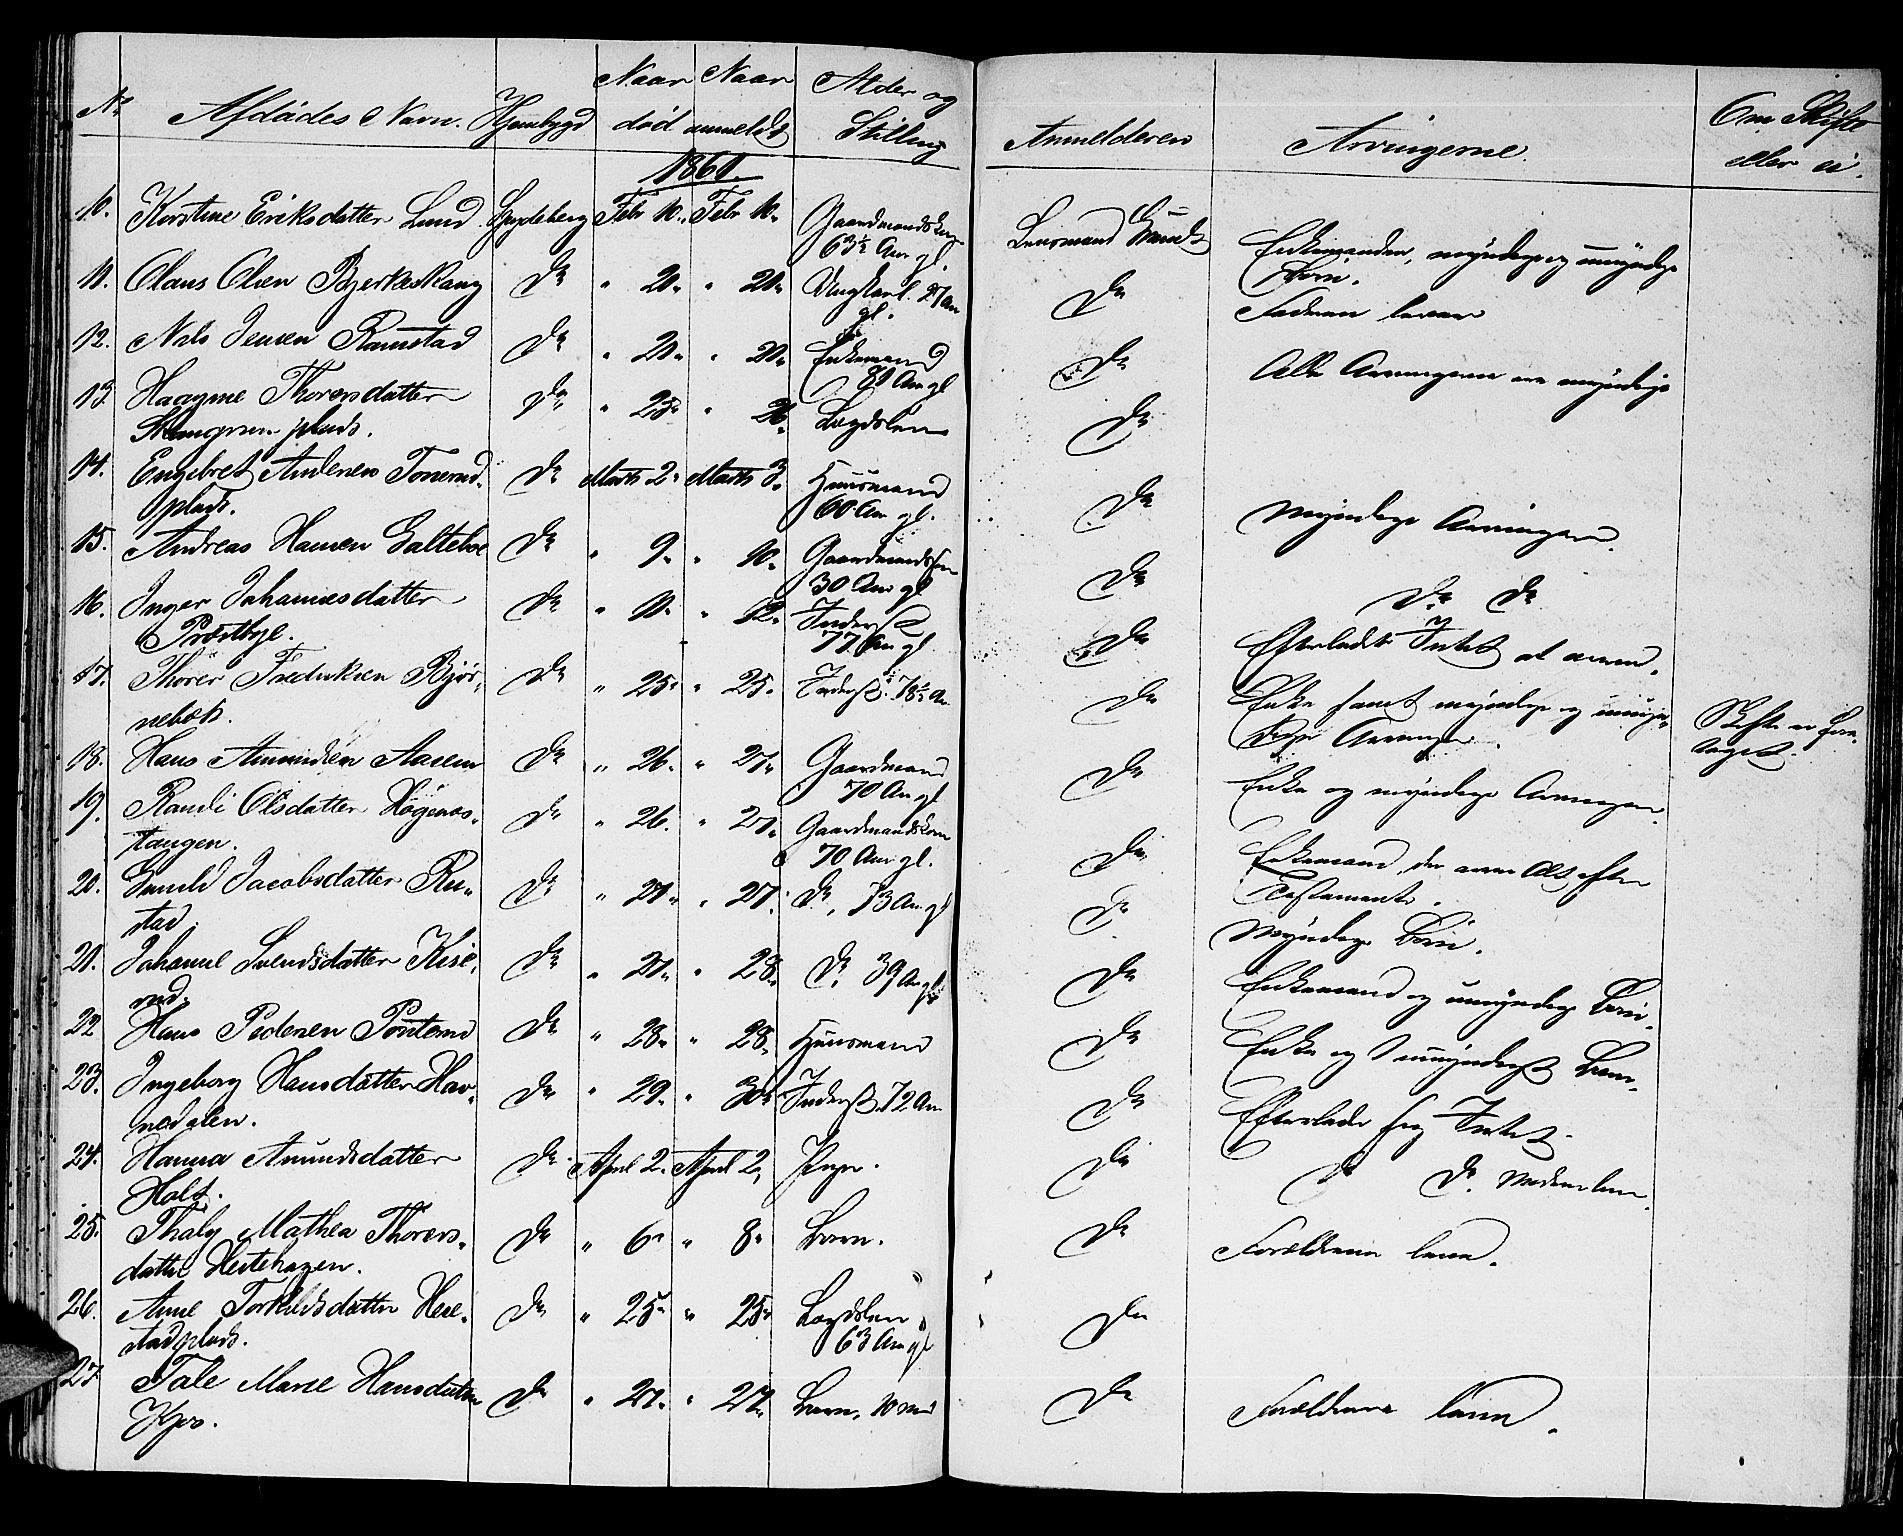 No Afdødes Navn. Hjembygd Naar død Naar anmeldt Alder og Stilling Anmelderen Arvingerne. Om Skifte eller ei.
1861.
10. Kirstine Eriksdatter Lund Spydeberg Febr 10. Febr 10. Gaardmandskone Lensmand
63½ Aar gl. Enkemanden, myndige og umyndige
Børn.
11. Olaus Olsen Bjerkeskaug Do " 20. " 20. Ungkarl. 27 Aar Do Faderen lever
gl.
12. Nils Jensen Ramstad Do " 20. " 20. Enkemand Do Alle Arvingerne ere myndige
81 Aar gl
13. Haagine Thorersdatter Do " 25. " 26. Lægdslem Do
plads.
14. Engebret Andersen Tonerud Do Marts 2. Marts 3. Huusmand Do Myndige Arvinger.
plads. 60 Aar gl.
15. Andreas Hansen Galteboe Do " 9. " 10. Gaardmandssøn Do Do Do
30 Aar gl
16. Inger Johannesdatter Do " 11. " 12. Inderst Do Efterladt Intet at arve.
Præstbye. 77 Aar gl
17. Thorer Fredriksen Bjør- Do " 25. " 25. Inderst. 78½ Aar Do Enke samt myndige og umyn-
nebæk. dige Arvinger. Skifte er fore-
taget.
18. Hans Amundsen Aasem Do " 26. " 27. Gaardmand Do Enke og myndige Arvinger.
70 Aar gl
19. Randi Olsdatter Høgenæs- Do " 26. " 27. Gaardmandskone Do Enkemand, der arver Alt efter
tangen. 70 Aar gl. Testamente.
20. Gunild Jacobsdatter Ru- Do " 27. " 27. Do, 73 Aar gl Do Myndige Børn.
stad
21. Johanne Svendsdatter Kise- Do " 27. " 28. Do. 39 Aar gl. Do Enkemand og umyndige Børn.
rud.
22 Hans Pedersen Do " 28. " 28. Huusmand Do Enke og 1 umyndigt Barn.
23. Ingeborg Hansdatter Hav- Do " 29. " 30. Inderst. 72 Aar Do Efterlader sig Intet.
nedalen.
24. Hanna Amundsdatter Do April 2. April 2. Pige. Do Do Do. Moderen lever.
Holt.
25. Thaly Mathea Thorers- Do " 6. " 8. Barn. Do Forældrene lever.
datter Heitehagen.
26. Anne Torkildsdatter Do " 25. " 25. Lægdslem Do
stadplads. 63 Aar gl
27 Tale Marie Hansdatter Do " 27. " 27. Barn, 10 Md Do Forældrene lever.
Kjos.